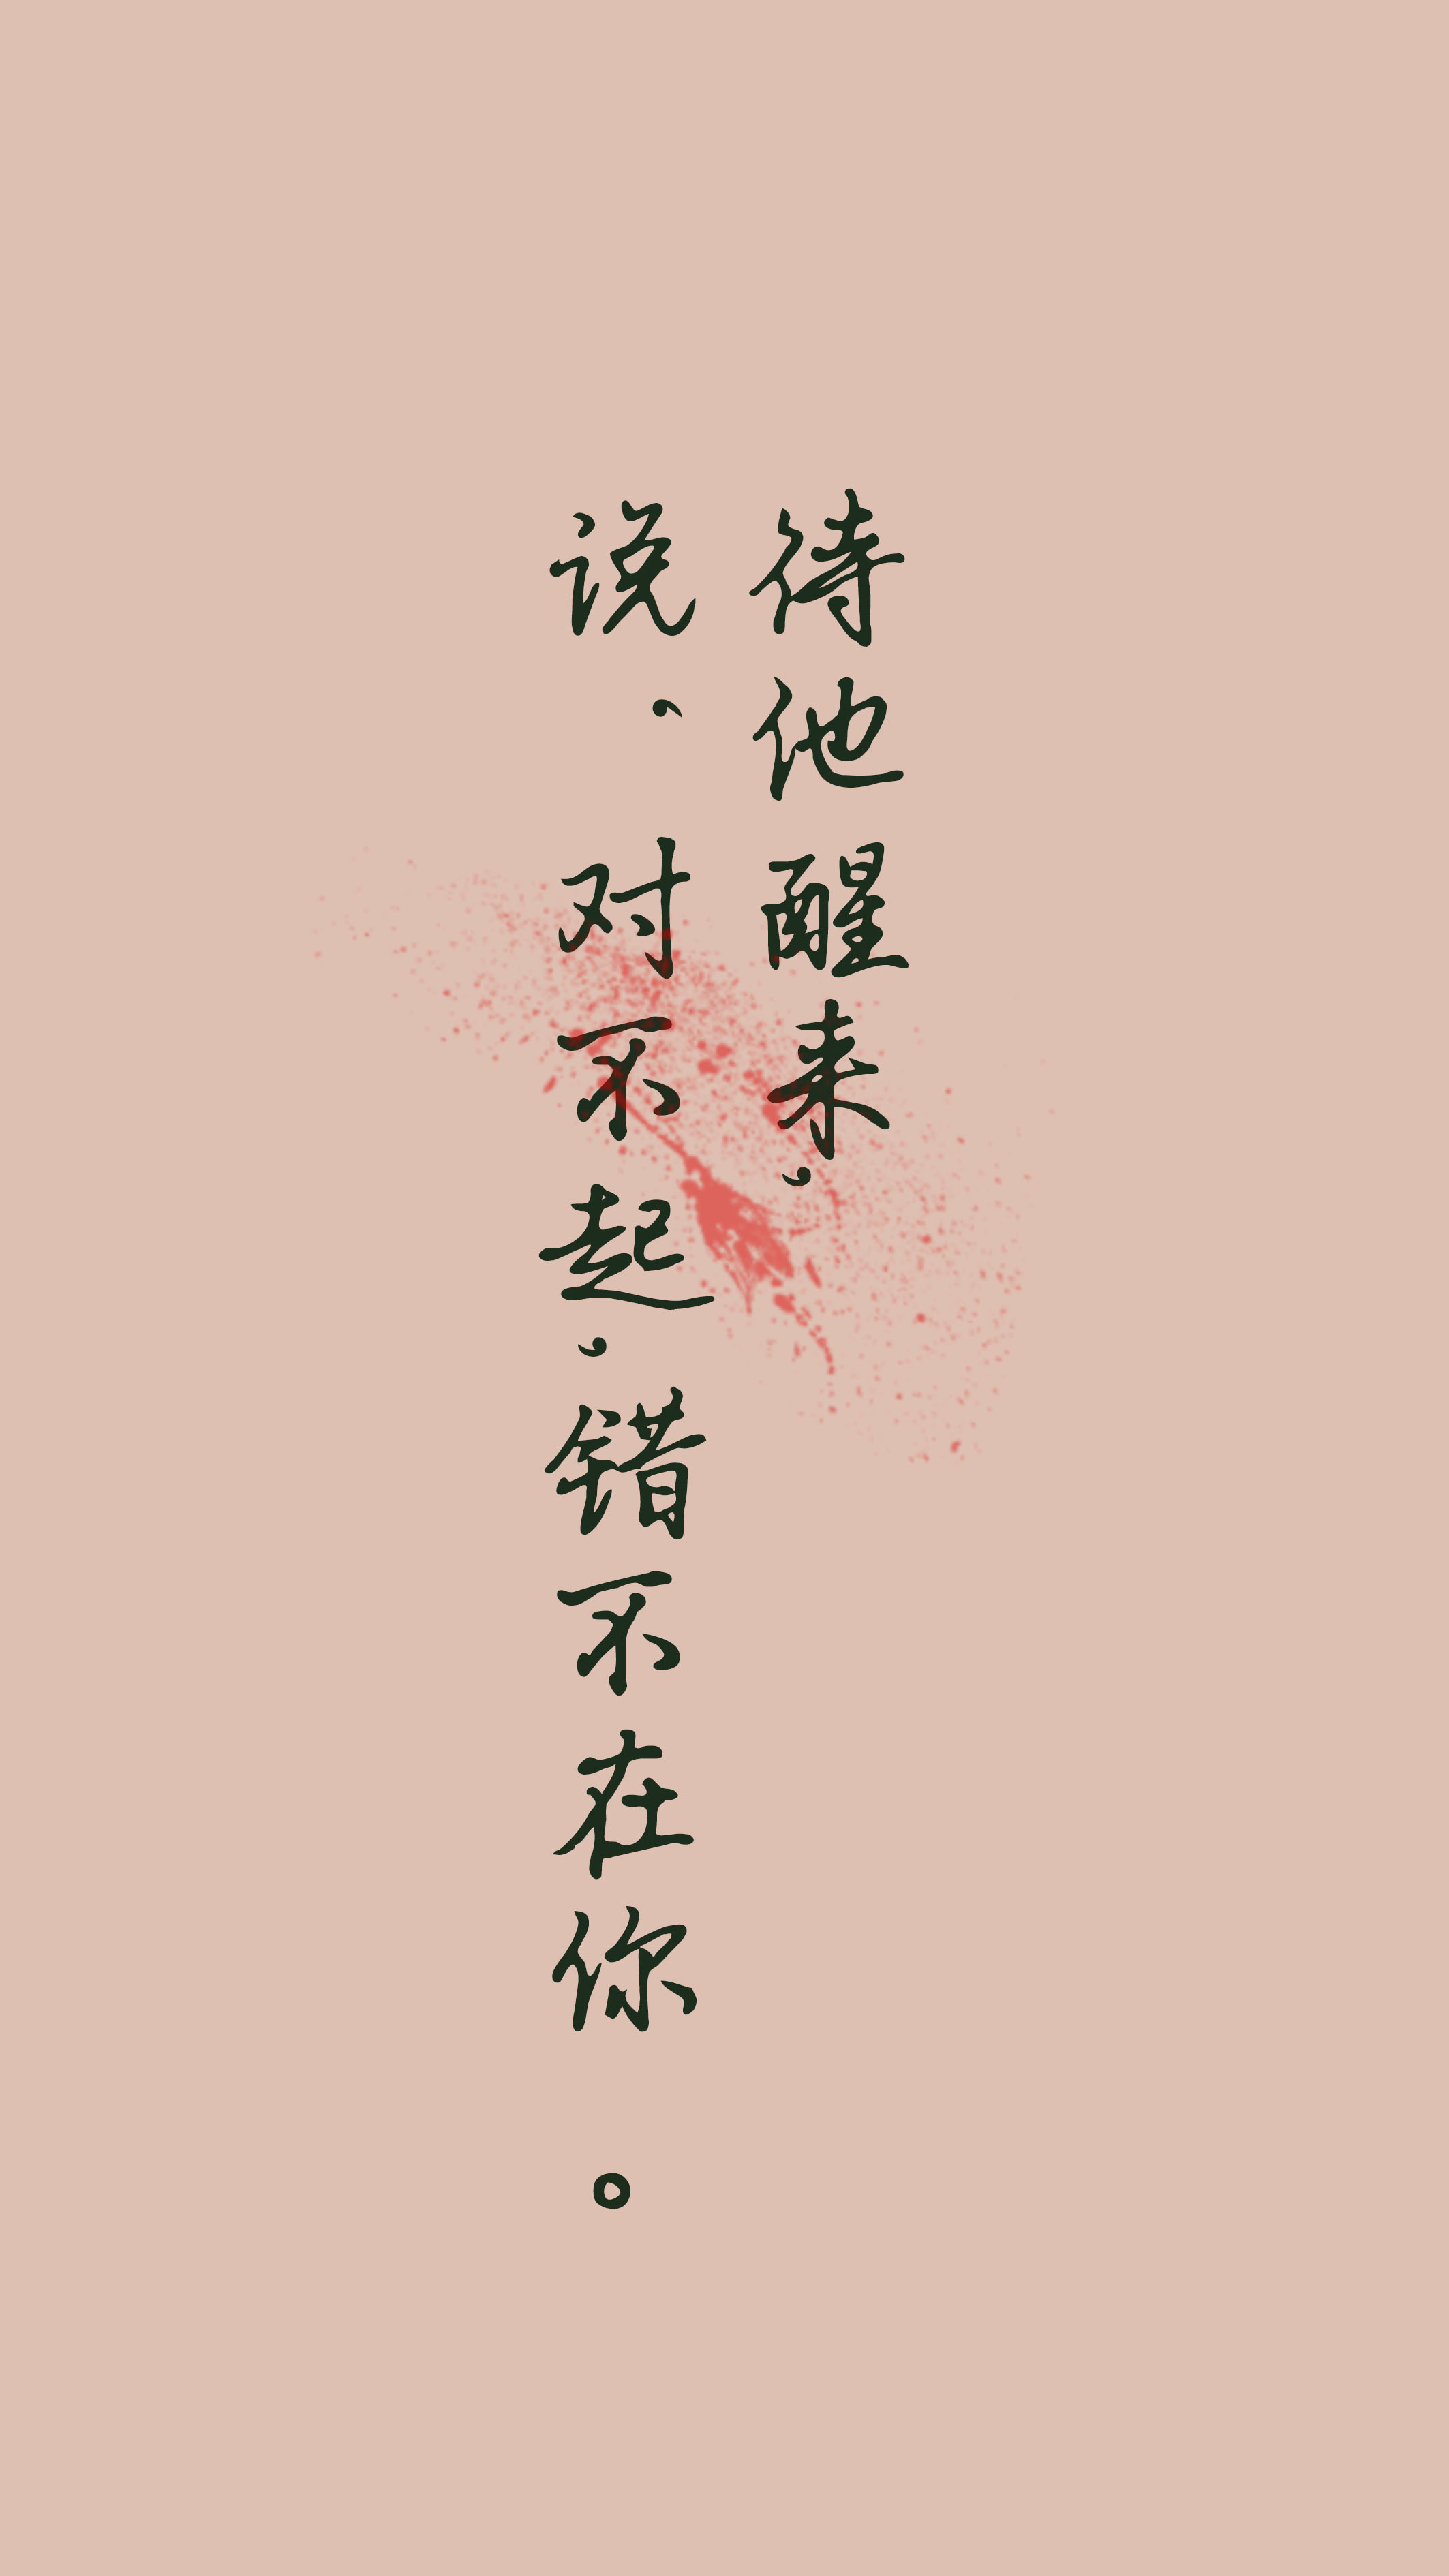 待他醒来，
说，对不起，错不在你。